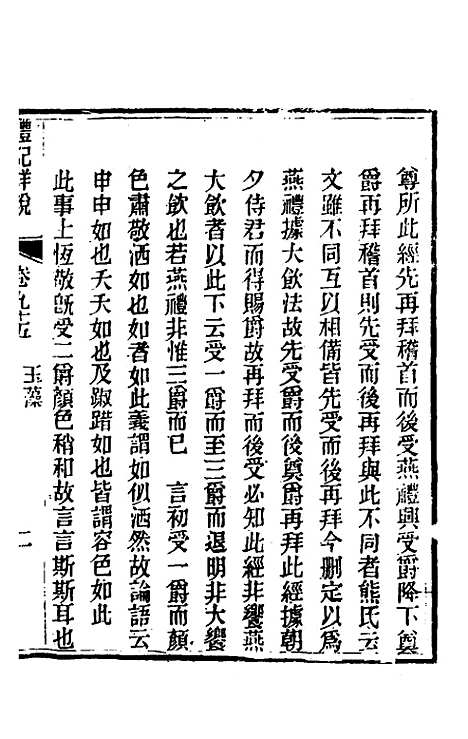 尊所此經先再拜稽首而後受燕禮興受爵降下奠
爵再拜稽首則先受而後再拜與此不同者熊氏云
文雖不同互以相備皆先受而後再拜今刪定以爲
燕禮據大飲法故先受爵而後奠爵再拜此經據朝
夕侍君而得賜爵故再拜而後受必知此經非饗燕
大飲者以此下云受一爵而至三爵而退明非大饗
之飲也若燕禮非惟三爵而已 言初受一爵而顏
色肅敬洒如也如者如此義謂如似洒然故論語云
申申如也夭夭如也及踧踖如也皆謂容色如此
此事上恆敬旣受二爵顏色稍和故言言斯斯耳也
禮記詳說 卷九十五 玉藻 二